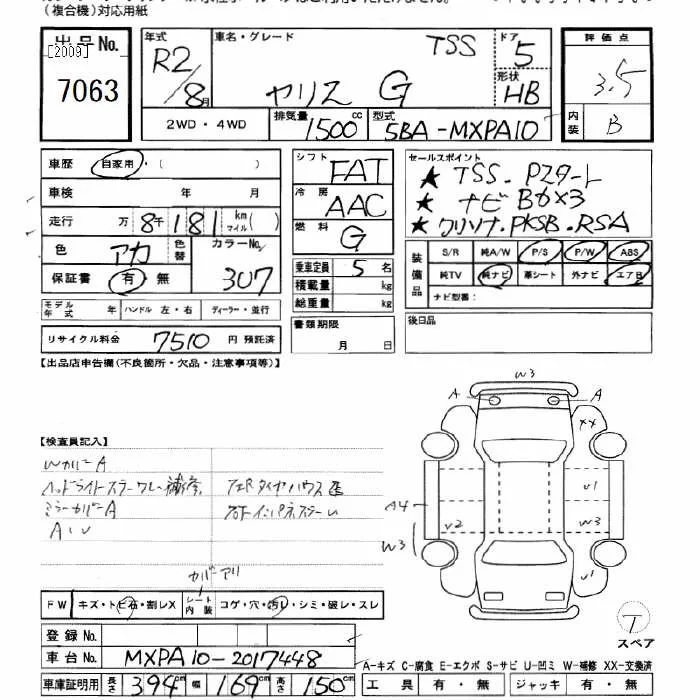 (複合機)対応用紙
出品No.
[2009]
7063
年式 R2/8月
車名・グレード ヤリス G TSS
ドア 5
形状 HB
2WD・4WD
排気量 1500cc
型式 5BA-MXPA10
評価点 3.5
内装 B
車歴 自家用・( )
車検 年 月
走行 万 8千181 km マイル( )
色 アカ 色替
カラーNo. 3U7
保証書 有・無
モデル年式 年 ハンドル 左・右 ディーラー・並行
リサイクル料金 7510 円 預託済
シフト FAT
冷房 AAC
燃料 G
乗車定員 5名
積載量 kg
総重量 kg
書類期限 月 日
セールスポイント
★ TSS. Pスタート
★ ナビ Bカメラ
★ クリソナ.PKSB.RSA
装備品 S/R 純A/W P/S P/W ABS
純TV 純ナビ 革シート 外ナビ エアB
ナビ型番:
後日品
【出品店申告欄(不良箇所・欠品・注意事項等)】
【検査員記入】
WカバーA
ヘッドライトステーワレ補修
ミラーカバーA
AlU
カバーアリ
W3
A A
XX
A4
W3
U2
U1
W3
U1
T
スペア
FW キズ・トビ石・割レX シート内装 コゲ・穴・汚レ・シミ・破レ・スレ
登録No.
車台No. MXPA10-2017448
車庫証明用 長さ 394cm 幅 169cm 高さ 150cm
A-キズ C-腐食 E-エクボ S-サビ U-凹ミ W-補修 XX-交換済
工具 有・無 ジャッキ 有・無